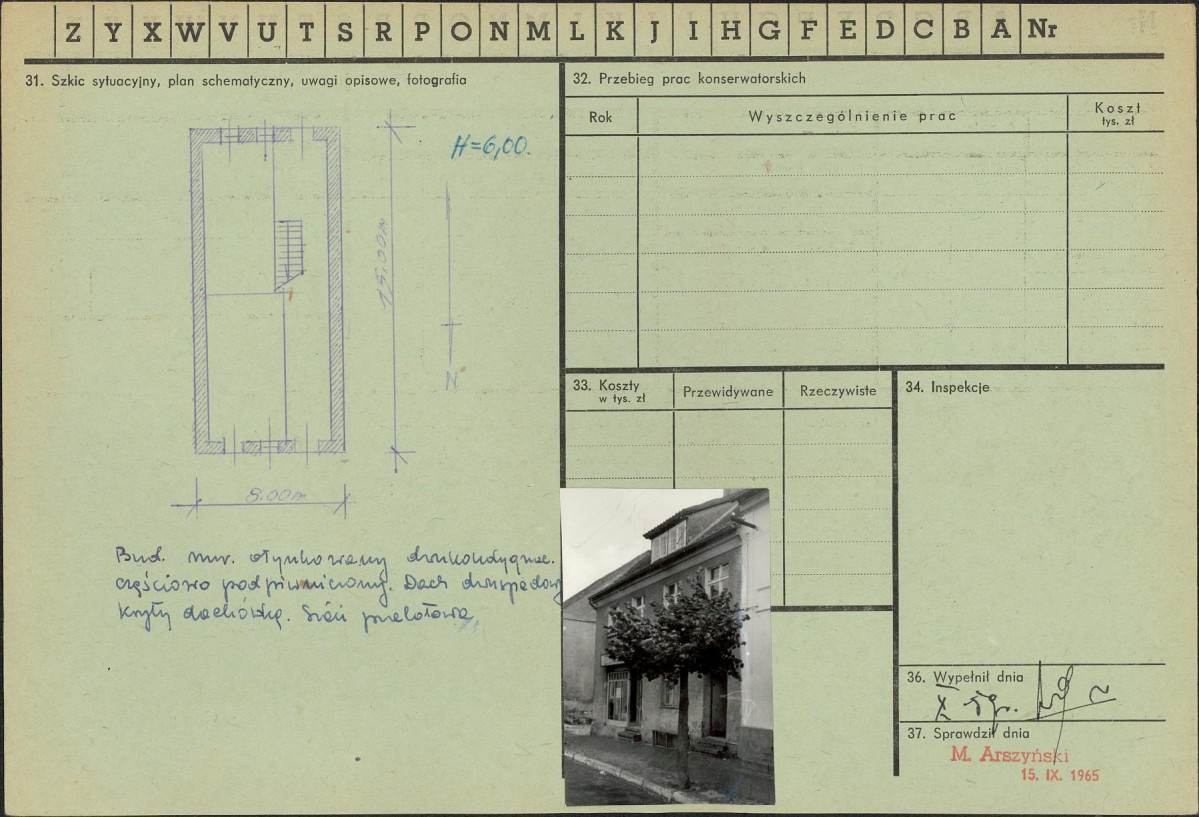 Z Y X W V U T S R P O N M L K J I H G F E D C B A Nr
31. Szkic sytuacyjny, plan schematyczny, uwagi opisowe, fotografia
H=6,00.
15.00m
N
8.00m
Bud. mur. otynkowany dwukondygnac.
częściowo podpiwniczony. Dach dwuspadowy
kryty dachówką. Sień przelotowa.
32. Przebieg prac konserwatorskich
Rok
Wyszczególnienie prac
Koszt
tys. zł
33. Koszty
w tys. zł
Przewidywane
Rzeczywiste
34. Inspekcje
36. Wypełnił dnia
X 59r.
37. Sprawdził dnia
M. Arszyński
15. IX. 1965